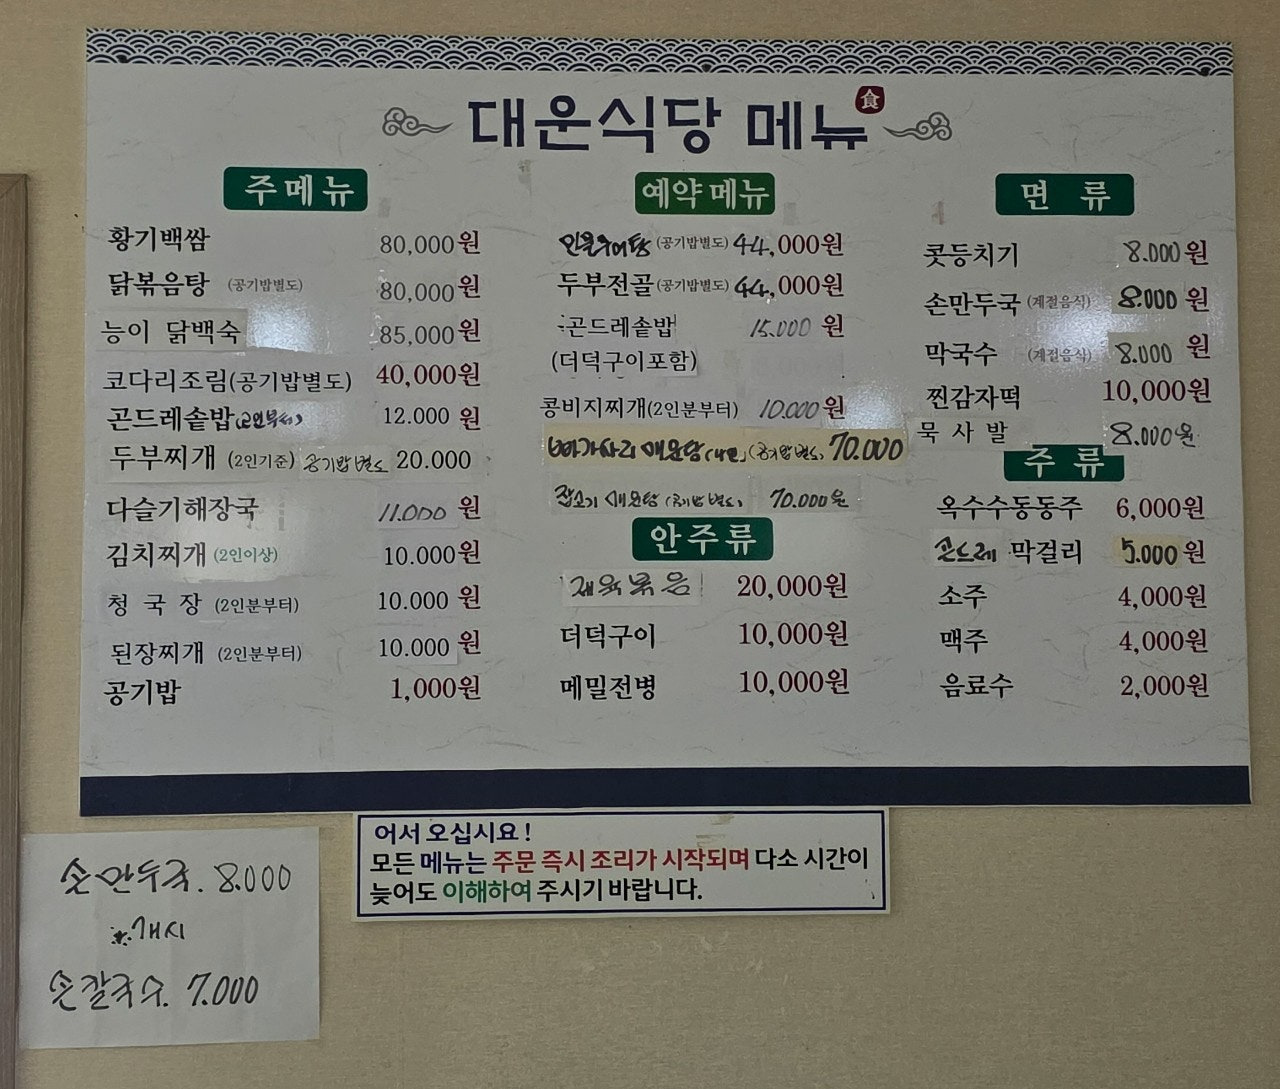 대운식당 메뉴 食
주메뉴
황기백쌈 80,000원
닭볶음탕 (공기밥별도) 80,000원
능이 닭백숙 85,000원
코다리조림(공기밥별도) 40,000원
곤드레솥밥(2인부터) 12.000 원
두부찌개 (2인기준) 공기밥 별도 20.000
다슬기해장국 11.000 원
김치찌개 (2인이상) 10.000원
청 국 장 (2인분부터) 10.000 원
된장찌개 (2인분부터) 10.000 원
공기밥 1,000원
예약메뉴
민물추어탕 (공기밥별도) 44,000원
두부전골 (공기밥별도) 44,000원
곤드레솥밥 15.000 원
(더덕구이포함)
콩비지찌개(2인분부터) 10.000원
빠가사리 매운탕 (공기밥 별도) 70.000
잡고기 매운탕 (공기밥 별도) 70.000원
안주류
제육볶음 20,000원
더덕구이 10,000원
메밀전병 10,000원
면 류
콧등치기 8.000원
손만두국 (계절음식) 8.000 원
막국수 (계절음식) 8.000 원
찐감자떡 10,000원
묵 사 발 8.000원
주 류
옥수수동동주 6,000원
곤드레 막걸리 5.000 원
소주 4,000원
맥주 4,000원
음료수 2,000원
어서 오십시요 !
모든 메뉴는 주문 즉시 조리가 시작되며 다소 시간이
늦어도 이해하여 주시기 바랍니다.
손만두국. 8.000
※개시
손칼국수. 7.000